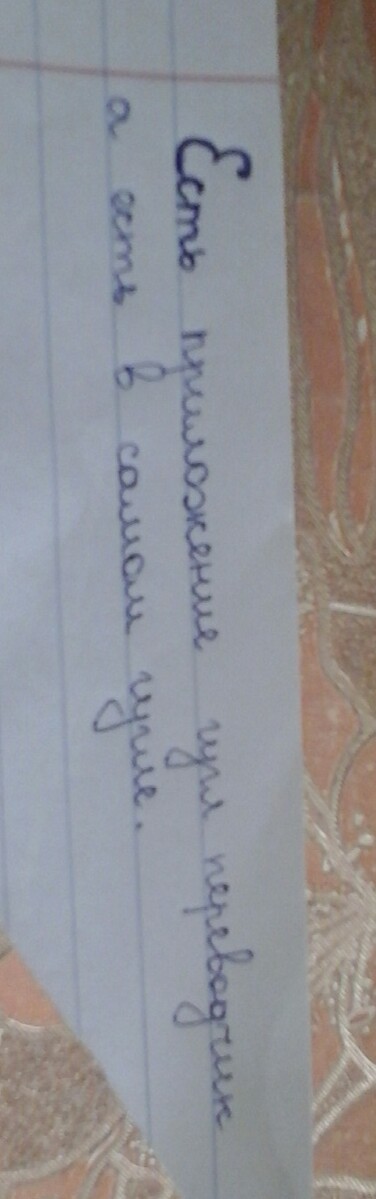 Есть приложение гугл переводчик
а есть в самом гугле.